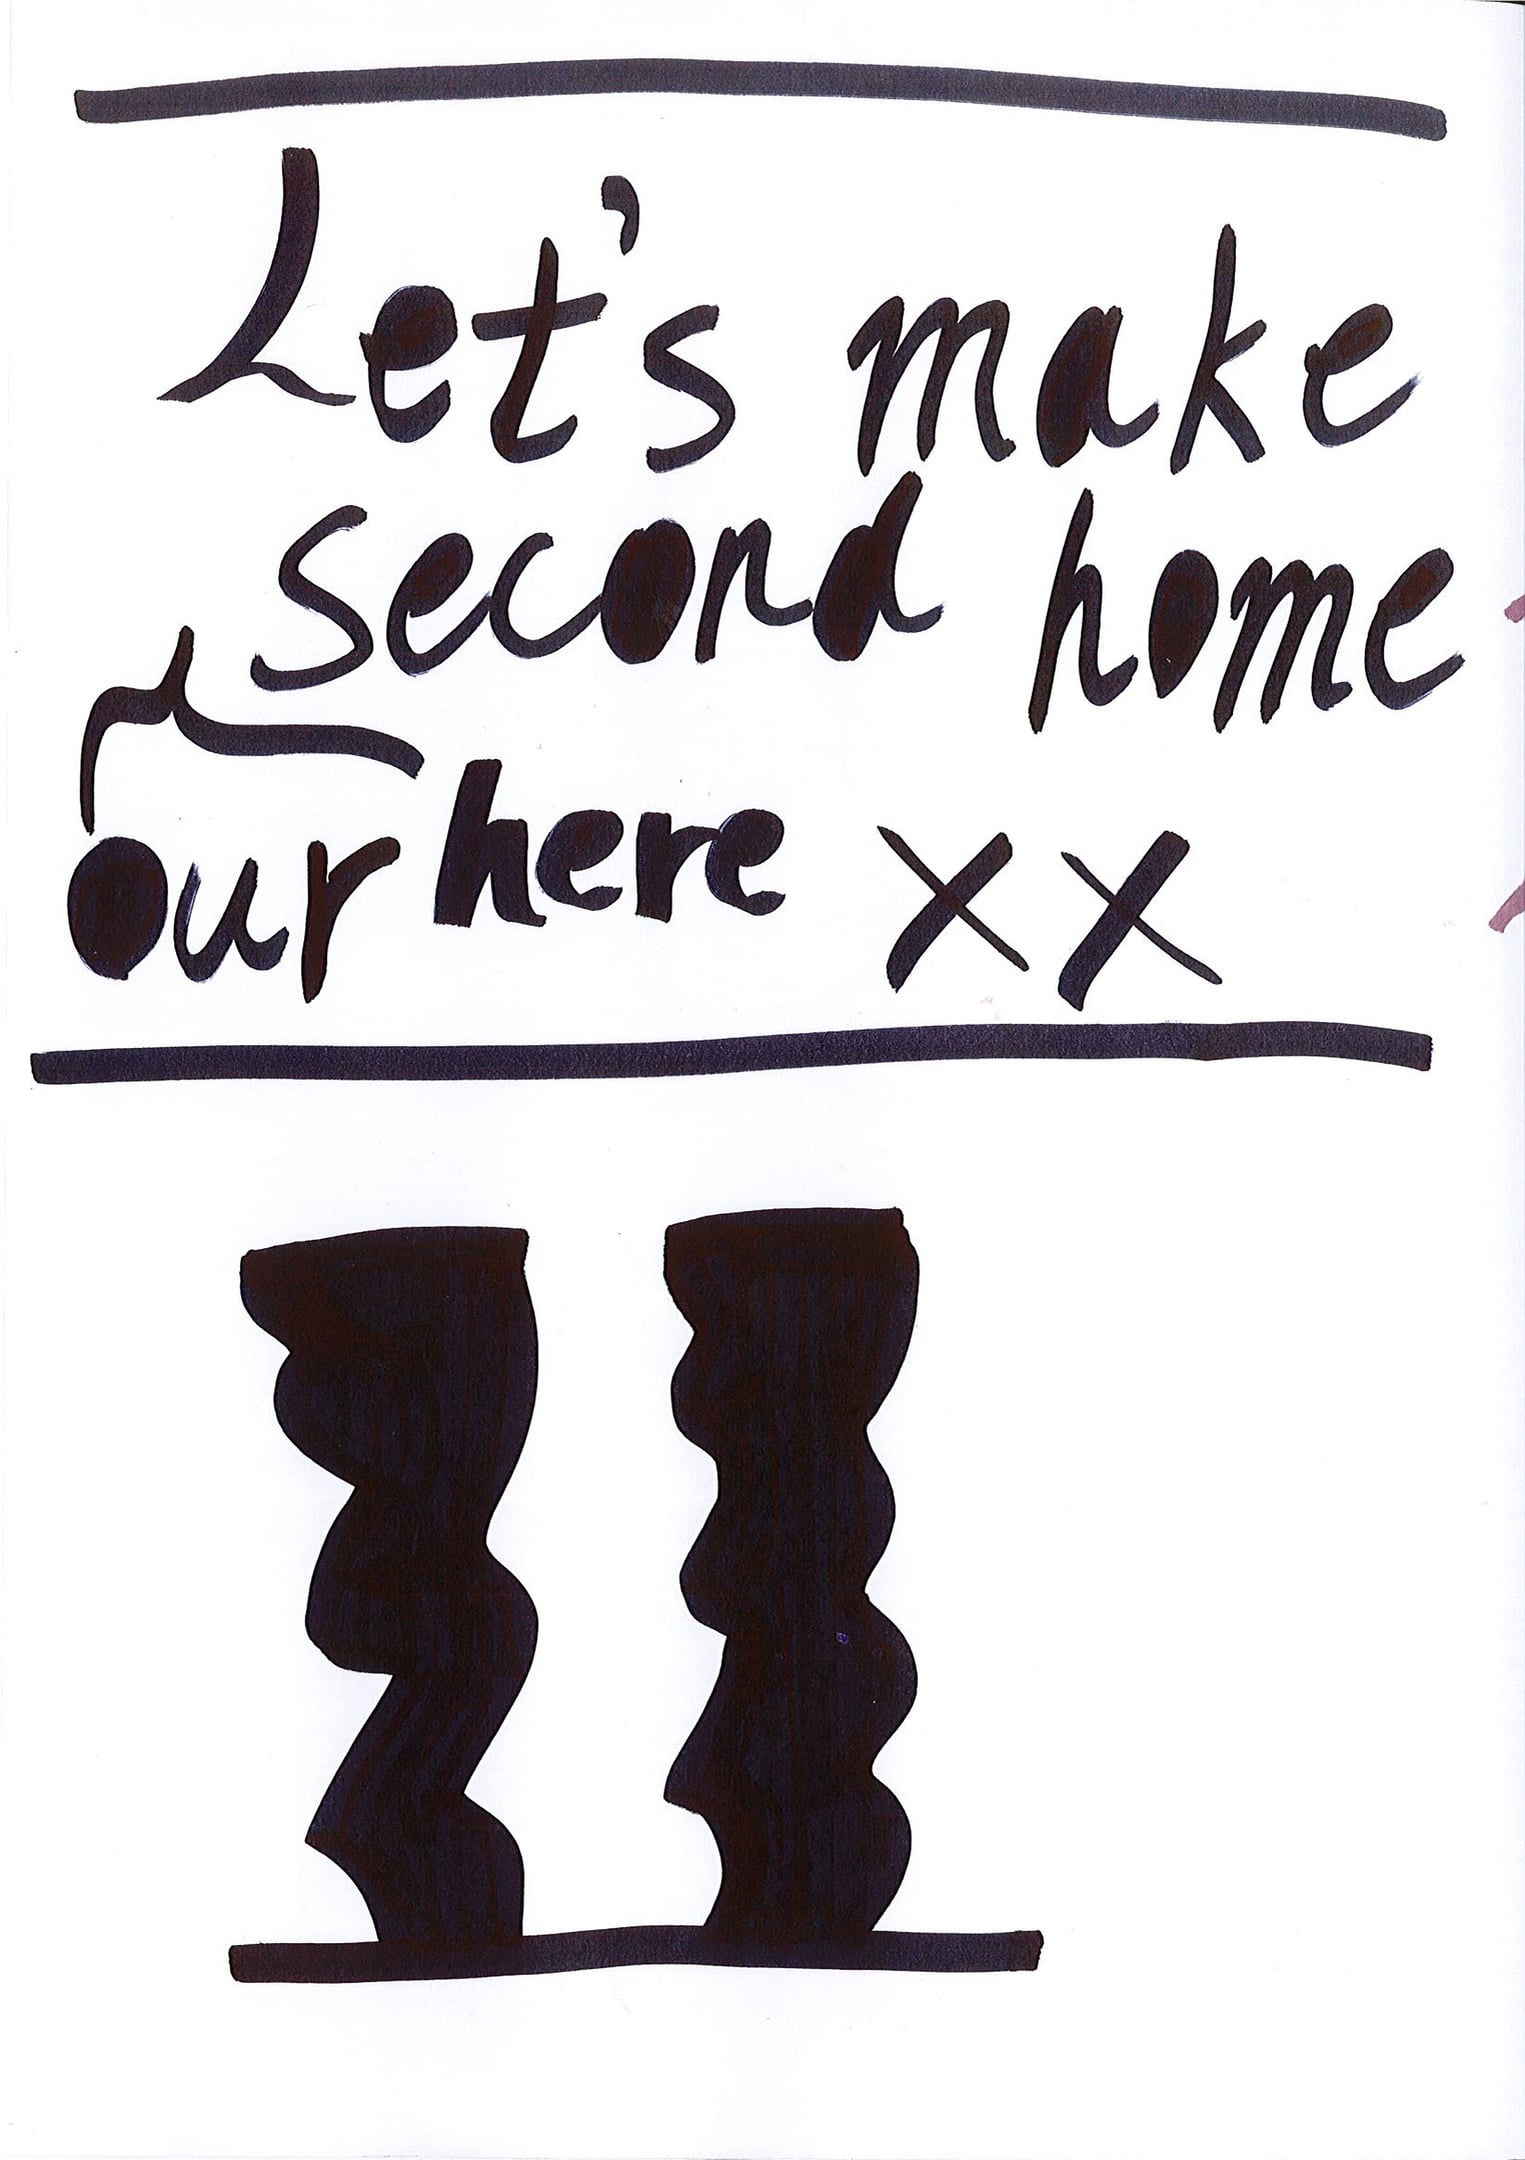 Let's make
second home
our here xx